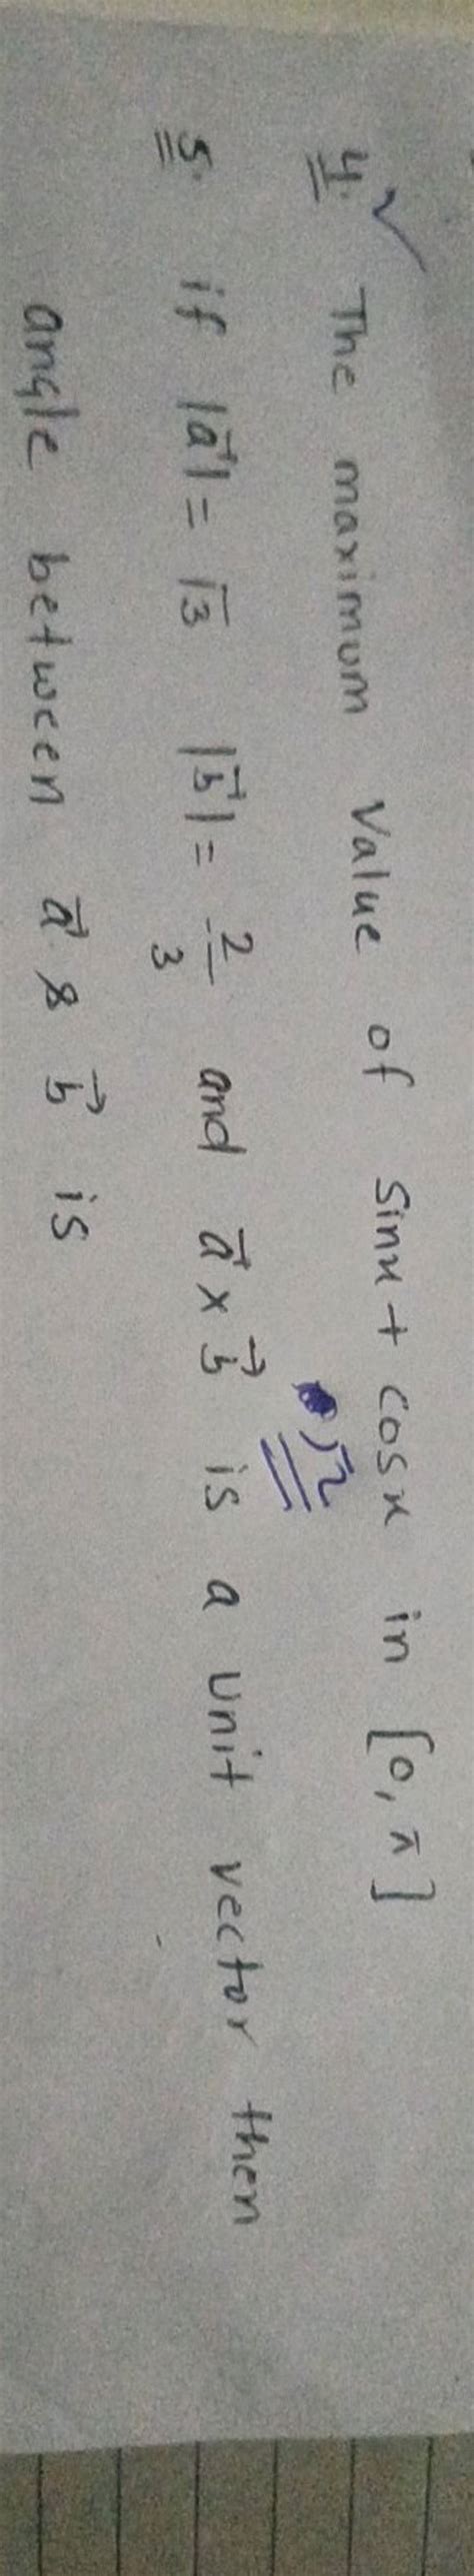 4. The maximum value of sinx + cosx in [0, π]
√2
5. if |a⃗| = √3 |b⃗| = 2/3 and a⃗ × b⃗ is a unit vector then
angle between a⃗ & b⃗ is